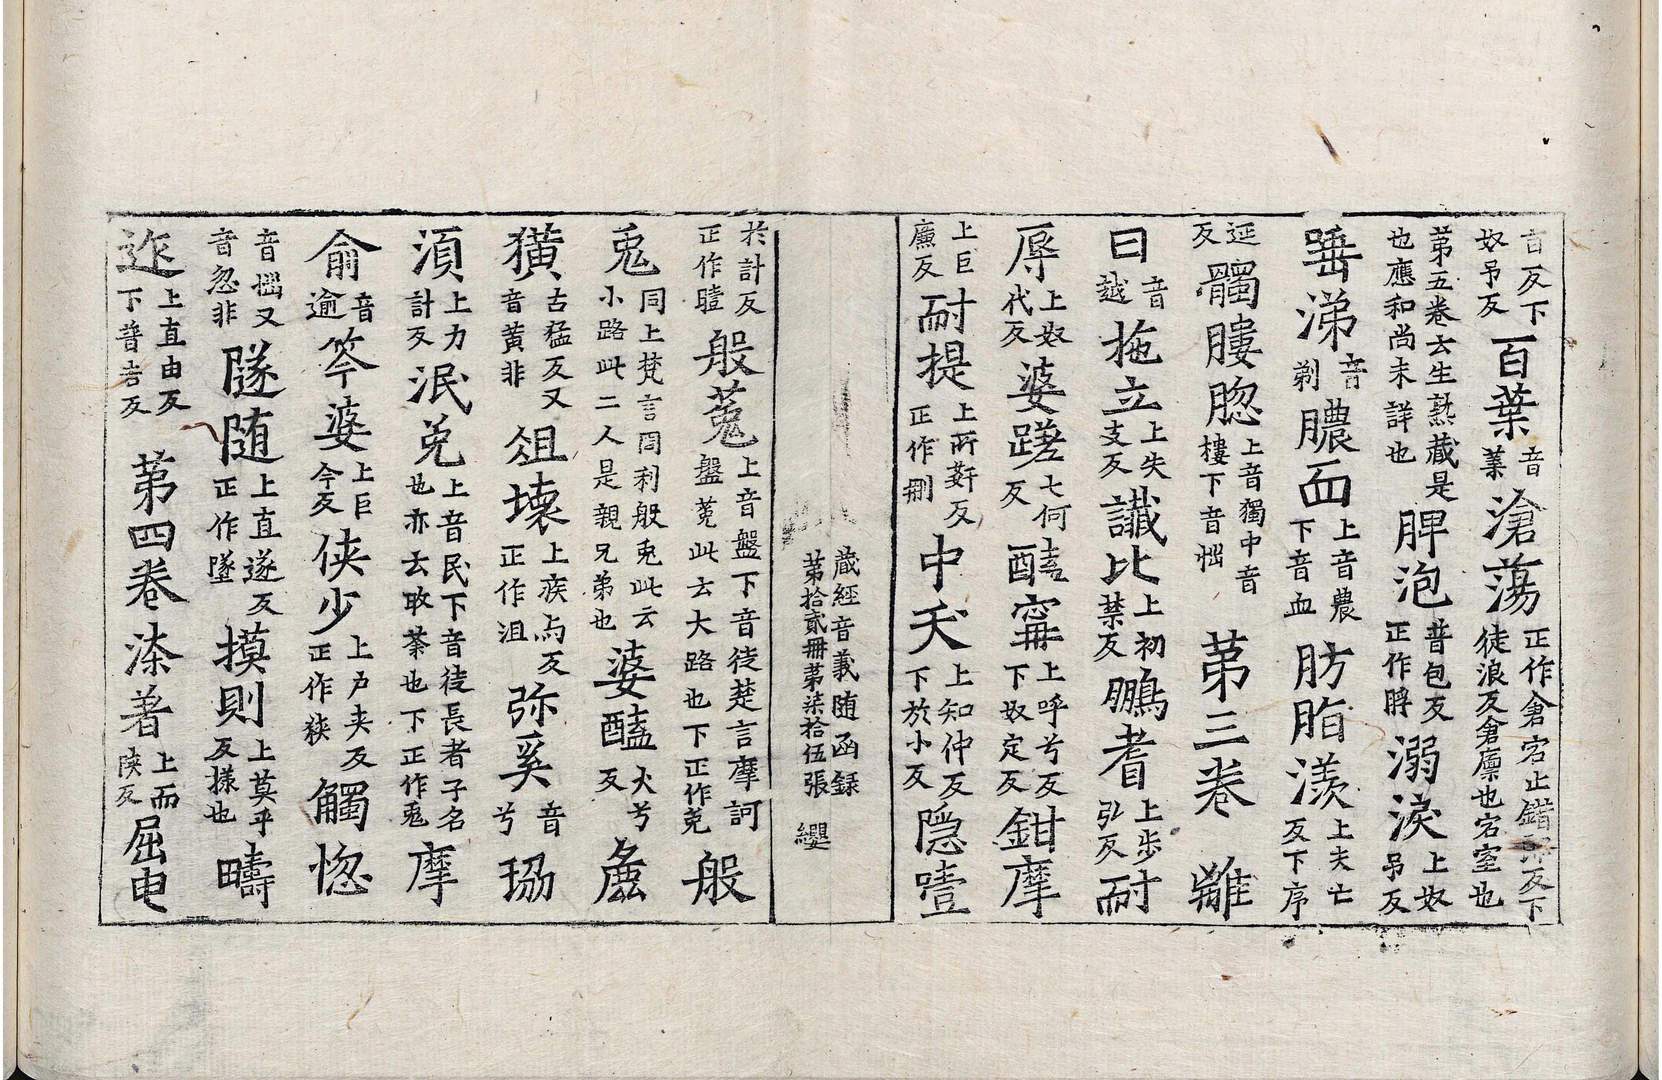 古反下奴吊反百葉音葉滄蕩正作倉宕上錯郎反下徒浪反倉廩也宕室也
第五卷云生熟藏是也應和尚未詳也脾泡普包反正作脬溺淚上奴吊反
唾涕音剃膿血上音農下音血肪脂羨上夫亡反下序
延反髑髏䐉上音獨中音樓下音惱第三卷 雖
曰音越拖立上失支反讖比上初禁反鵬耆上步弘反耐
辱上奴代反婆蹉七何反醯甯上呼兮反下奴定反鉗摩
上巨廉反耐提上所姧反正作刪中夭上知仲反下於小反隱噎
藏經音義随函録
第拾貳冊第柒拾伍張 纓
於計反正作曀般菟上音盤下音徒楚言摩訶盤菟此云大路也下正作兔般
兎同上梵言周利般兎此云小路此二人是親兄弟也婆醯火兮反麁
獷古猛反又音黄非俎壊上疾与反正作沮弥奚音兮㺲
湏上力計反泯兊上音民下音徒長者子名也亦云敢荼也下正作兎摩
俞音逾笒婆上巨今反侠少上戶夹反正作狹觸惚
音惱又音忽非隧随上直遂反正作墜摸則上莫乎反樣也疇
迮上直由反下普吉反第四卷 漆著上而陕反屈电